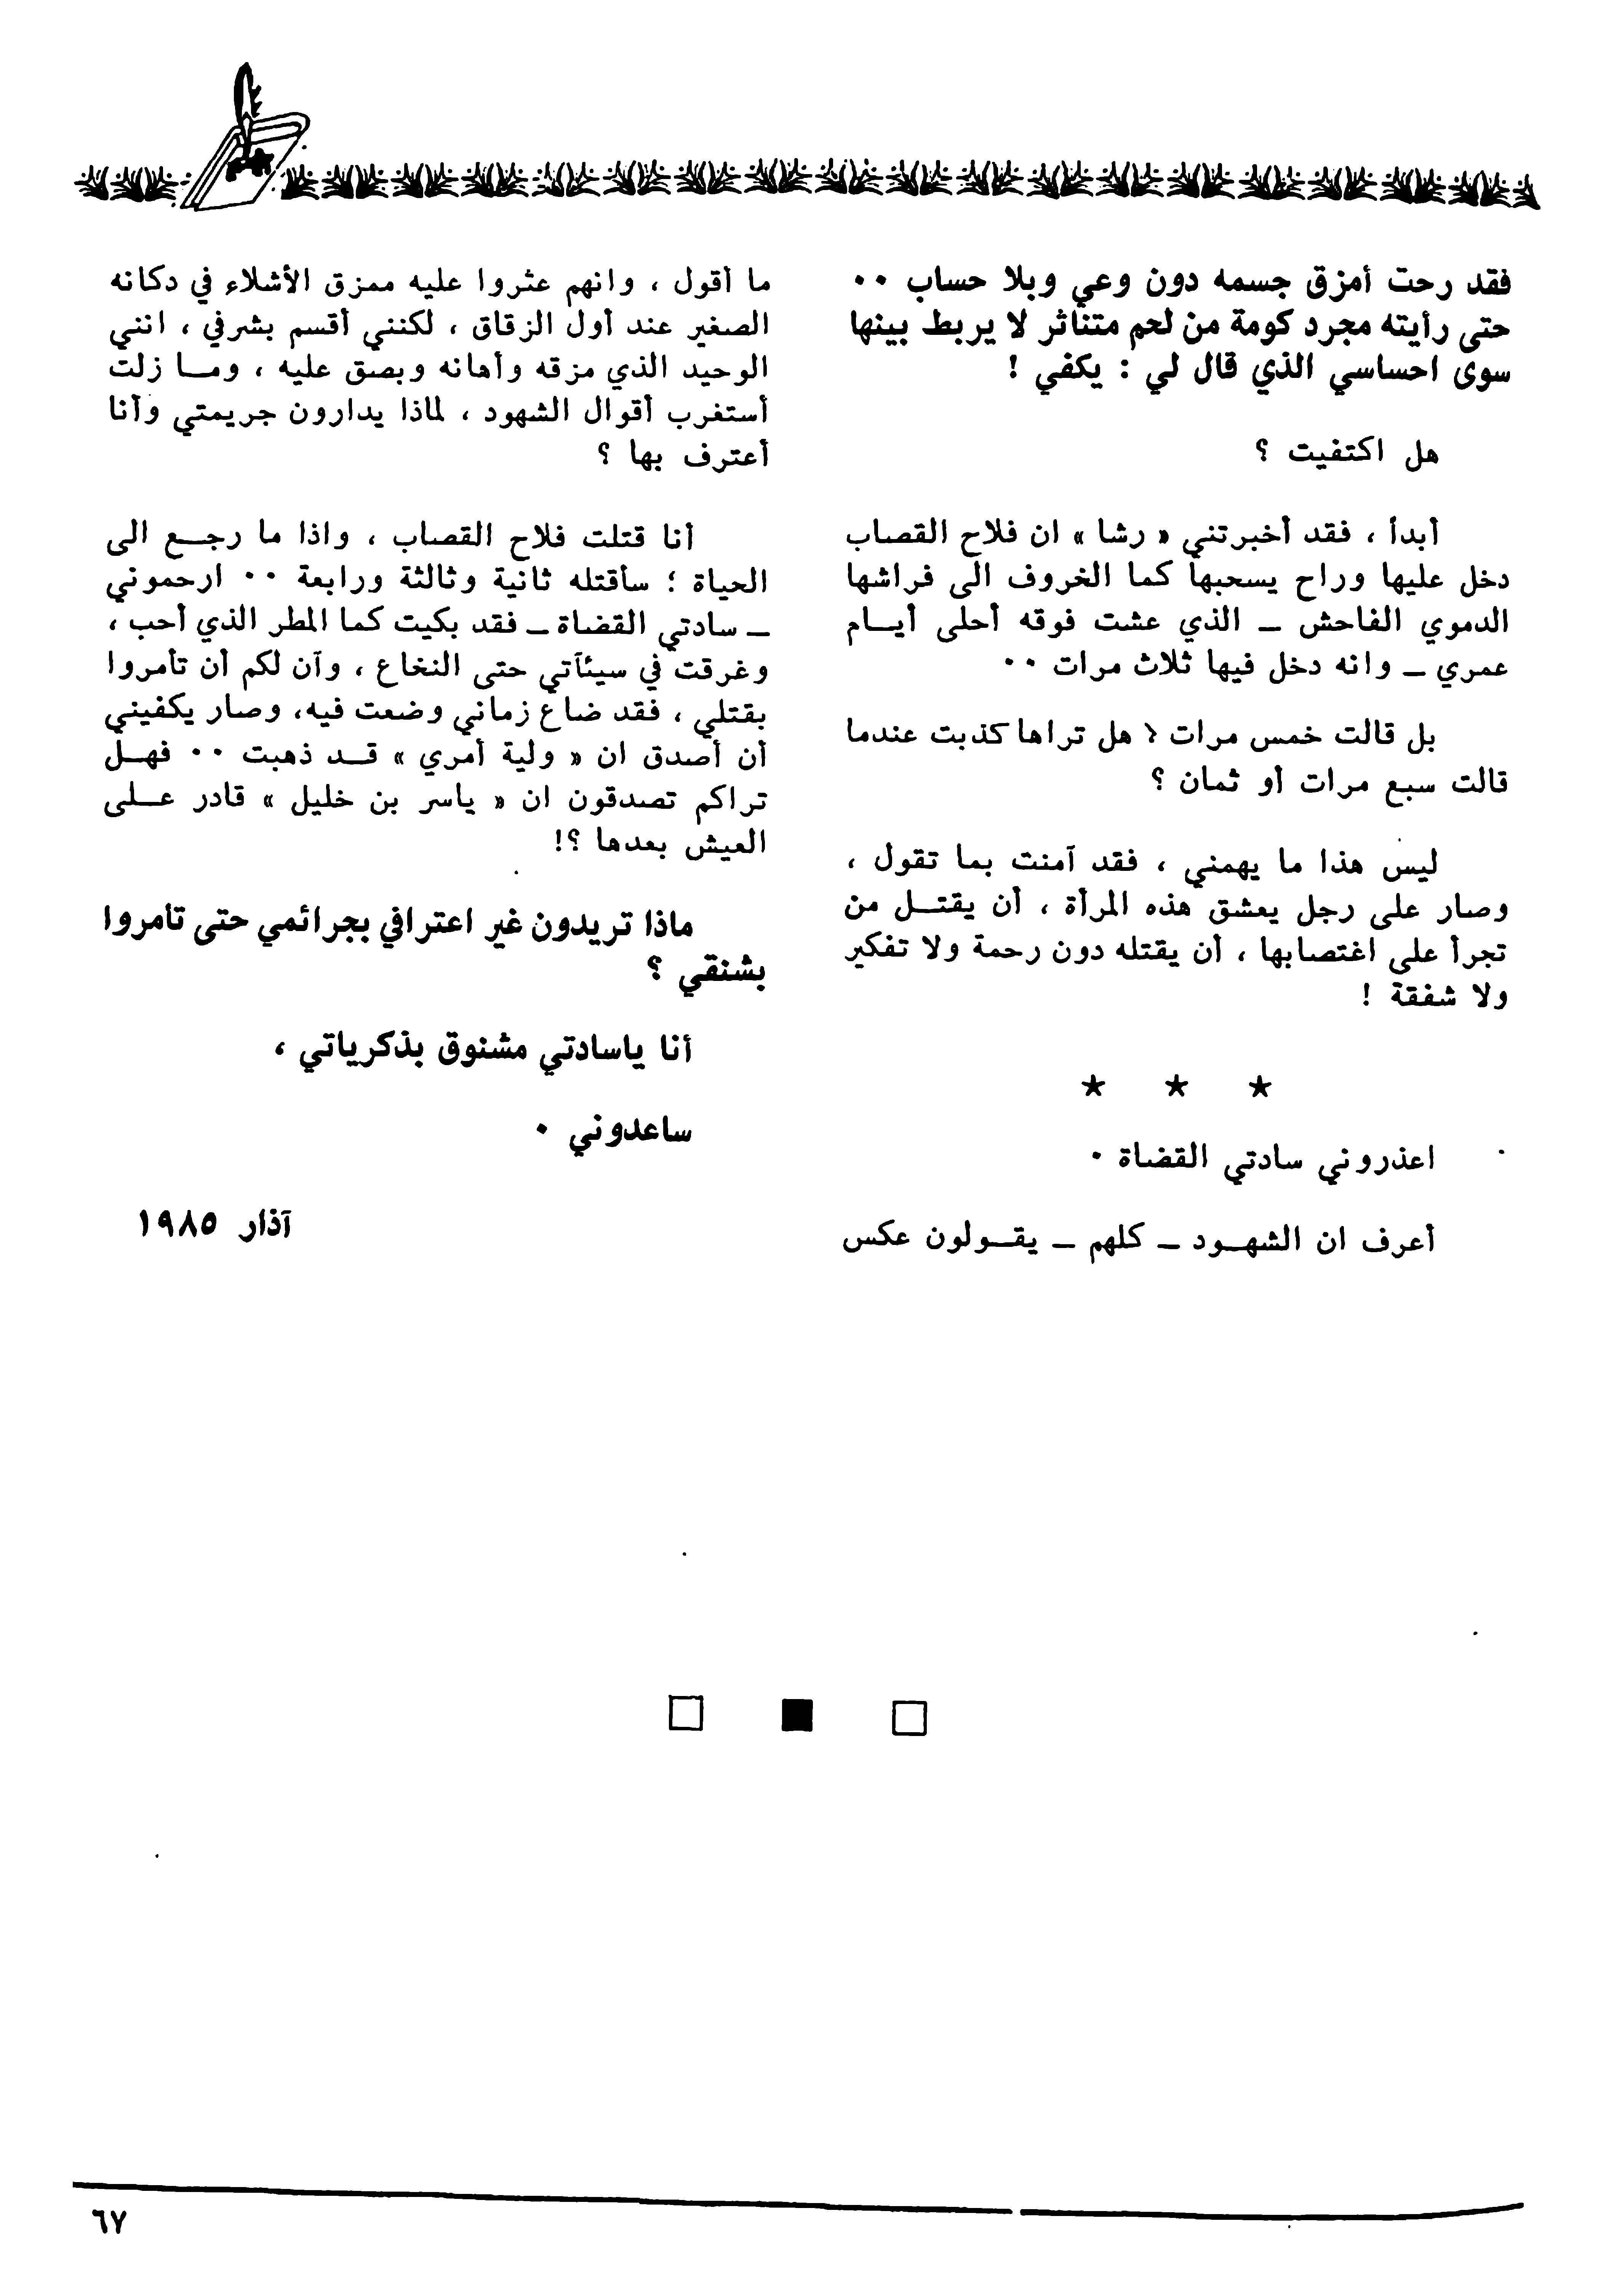 فقد رحت أمزق جسمه دون وعي وبلا حساب ٠٠
حتى رأيته مجرد كومة من لحم متناثر لا يربط بينها
سوى احساسي الذي قال لي : يكفي !
هل اكتفيت ؟
أبدأ ، فقد أخبرتني « رشا » ان فلاح القصاب
دخل عليها وراح يسحبها كما الخروف الى فراشها
الدموي الفاحش ــ الذي عشت فوقه أحلى أيــام
عمري ــ وانه دخل فيها ثلاث مرات ٠٠
بل قالت خمس مرات < هل تراها كذبت عندما
قالت سبع مرات أو ثمان ؟
ليس هذا ما يهمني ، فقد آمنت بما تقول ،
وصار على رجل يعشق هذه المرأة ، أن يقتــل من
تجرأ على اغتصابها ، أن يقتله دون رحمة ولا تفكير
ولا شفقة !
★ ★ ★
اعذروني سادتي القضاة ٠
أعرف ان الشهــود ــ كلهم ــ يقــولون عكس
ما أقول ، وانهم عثروا عليه ممزق الأشلاء في دكانه
الصغير عند أول الزقاق ، لكنني أقسم بشرفي ، انني
الوحيد الذي مزقه وأهانه وبصق عليه ، ومــا زلت
أستغرب أقوال الشهود ، لماذا يدارون جريمتي وأنا
أعترف بها ؟
أنا قتلت فلاح القصاب ، واذا ما رجــع الى
الحياة ؛ سأقتله ثانية وثالثة ورابعة ٠٠ ارحموني
ــ سادتي القضاة ــ فقد بكيت كما المطر الذي أحب ،
وغرقت في سيئآتي حتى النخاع ، وآن لكم أن تأمروا
بقتلي ، فقد ضاع زماني وضعت فيه، وصار يكفيني
أن أصدق ان « ولية أمري » قــد ذهبت ٠٠ فهــل
تراكم تصدقون ان « ياسر بن خليل » قادر عــلى
العيش بعدها ؟!
ماذا تريدون غير اعترافي بجرائمي حتى تأمروا
بشنقي ؟
أنا ياسادتي مشنوق بذكرياتي ،
ساعدوني ٠
آذار ١٩٨٥
٦٧